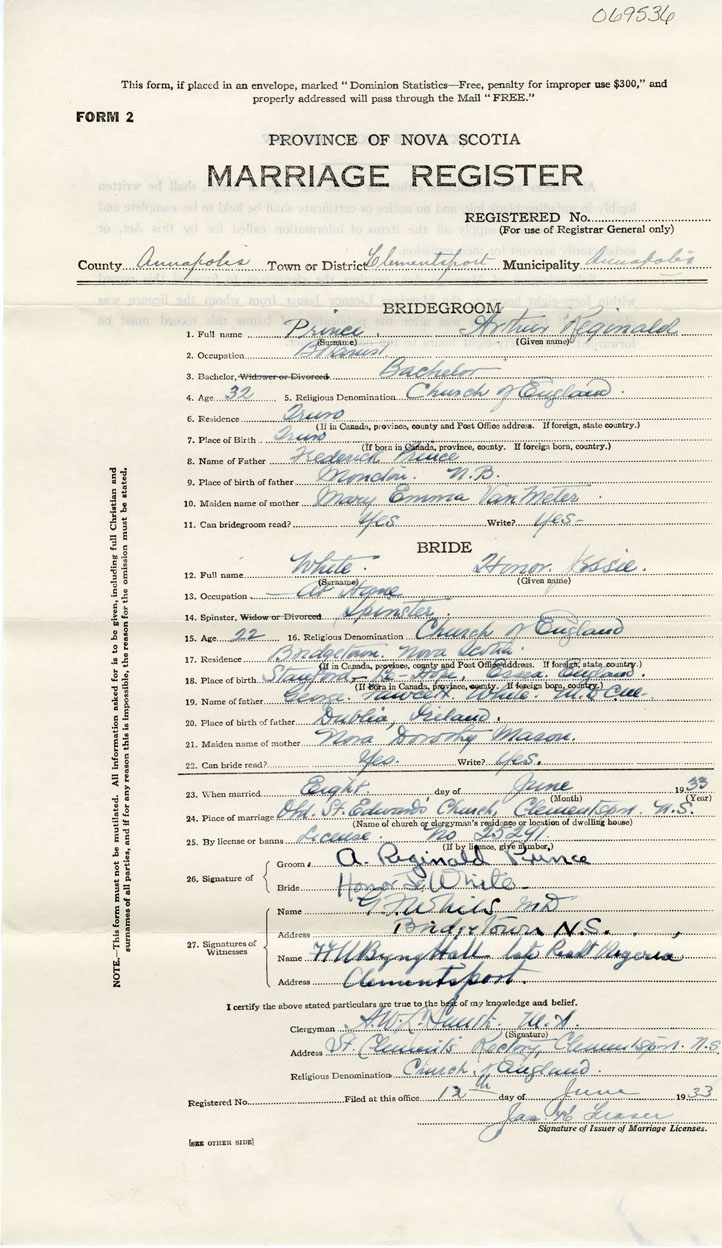 069536
This form, if placed in an envelope, marked "Dominion Statistics—Free, penalty for improper use $300," and
properly addressed will pass through the Mail "FREE."
FORM 2
PROVINCE OF NOVA SCOTIA
MARRIAGE REGISTER
REGISTERED No.
(For use of Registrar General only)
County Annapolis Town or District Clementsport Municipality Annapolis
BRIDEGROOM
1. Full name Prince Arthur Reginald
(Surname) (Given name)
2. Occupation
3. Bachelor, Widower or Divorced Bachelor
4. Age 32 5. Religious Denomination Church of England
6. Residence Truro
(If in Canada, province, county and Post Office address. If foreign, state country.)
7. Place of Birth Truro
(If born in Canada, province, county. If foreign born, country.)
8. Name of Father Frederick Prince
9. Place of birth of father Moncton N.B.
10. Maiden name of mother Mary Emma Van Meter
11. Can bridegroom read? Yes Write? Yes-
BRIDE
12. Full name White Honor Jessie.
(Surname) (Given name)
13. Occupation At Home
14. Spinster, Widow or Divorced Spinster.
15. Age 22 16. Religious Denomination Church of England
17. Residence Bridgetown, Nova Scotia.
(If in Canada, province, county and Post Office address. If foreign, state country.)
18. Place of birth Stanford-le-Hope, Essex, England.
(If born in Canada, province, county. If foreign born, country.)
19. Name of father George White.
20. Place of birth of father Dublin, Ireland.
21. Maiden name of mother Nora Dorothy Mason.
22. Can bride read? Yes. Write? Yes.
23. When married Eight day of June 1933
(Month) (Year)
24. Place of marriage Old St. Edward's Church, Clementspn. N.S.
(Name of church or clergyman's residence or location of dwelling house)
25. By license or banns License. No 25291.
(If by licence, give number,)
26. Signature of
Groom A. Reginald Prince
Bride Honor J. White
27. Signatures of Witnesses
Name White MD
Address Bridgetown N.S.
Name Byng Hall late Nigeria
Address Clementsport.
I certify the above stated particulars are true to the best of my knowledge and belief.
Clergyman A.W.L. Smith
(Signature)
Address St. Clement's Rectory, Clementspn. N.S.
Religious Denomination Church of England.
Registered No. Filed at this office 12th day of June 1933
Jas H Fraser
Signature of Issuer of Marriage Licenses.
[SEE OTHER SIDE]
NOTE.—This form must not be mutilated. All information asked for is to be given, including full Christian and
surnames of all parties, and if for any reason this is impossible, the reason for the omission must be stated.